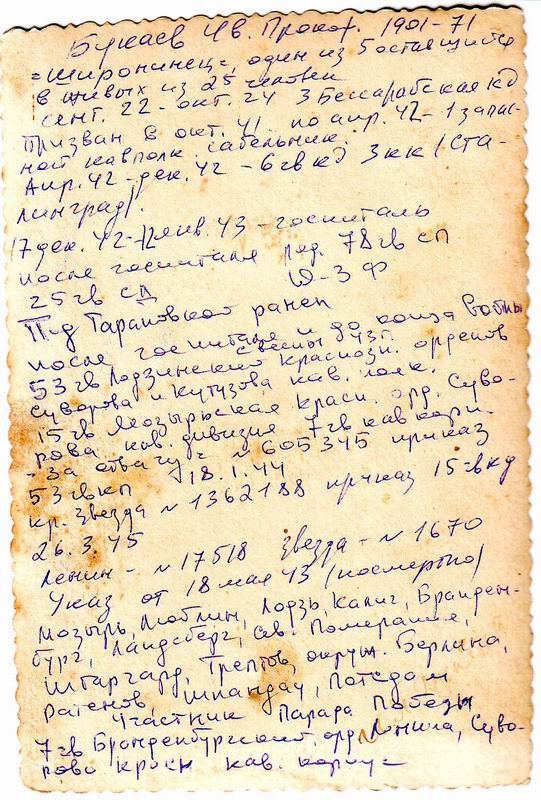 Букаев Ив. Прокоф. 1901-71
=Широнинец=, один из 5 остающихся
в живых из 25 человек
сент. 22 - окт. 24 3 Бессарабская кд
Призван в окт. 41. по апр. 42 - 1 запас-
ной кавполк. сабельник.
Апр. 42 - дек. 42 - 6 гв кд 3 кк /Ста-
линград/.
17 дек. 42 - 12 янв. 43 - госпиталь
после госпиталя ряд. 78 гв сп
25 гв сд Ю-З Ф
Под Тарановкой ранен
после госпиталя и до конца войны
с весны 43 г.
53 гв Лодзинский Краснозн. орденов
Суворова и Кутузова кав. полк.
15 гв Мозырьская красн. орд. Суво-
рова кав. дивизия 7 гв кав корп.
- За отвагу = N 605345 приказ
53 гвкп 18.1.44
кр. Звезда N 1362188 приказ 15 гвкд
26.3.45
Ленин - N 17518 Звезда - N 1670
Указ от 18 мая 43 /посмертно/
Мозырь, Люблин, Лодзь, Бранден-
бург, Ландсберг, Св. Померания,
Штаргард, Трептов, окруж. Берлина,
Ратенов, Шпандау, Потсдам
Участник Парада Победы
7 гв Бранденбургский, орд Ленина, Суво-
рова красн кав. корпус